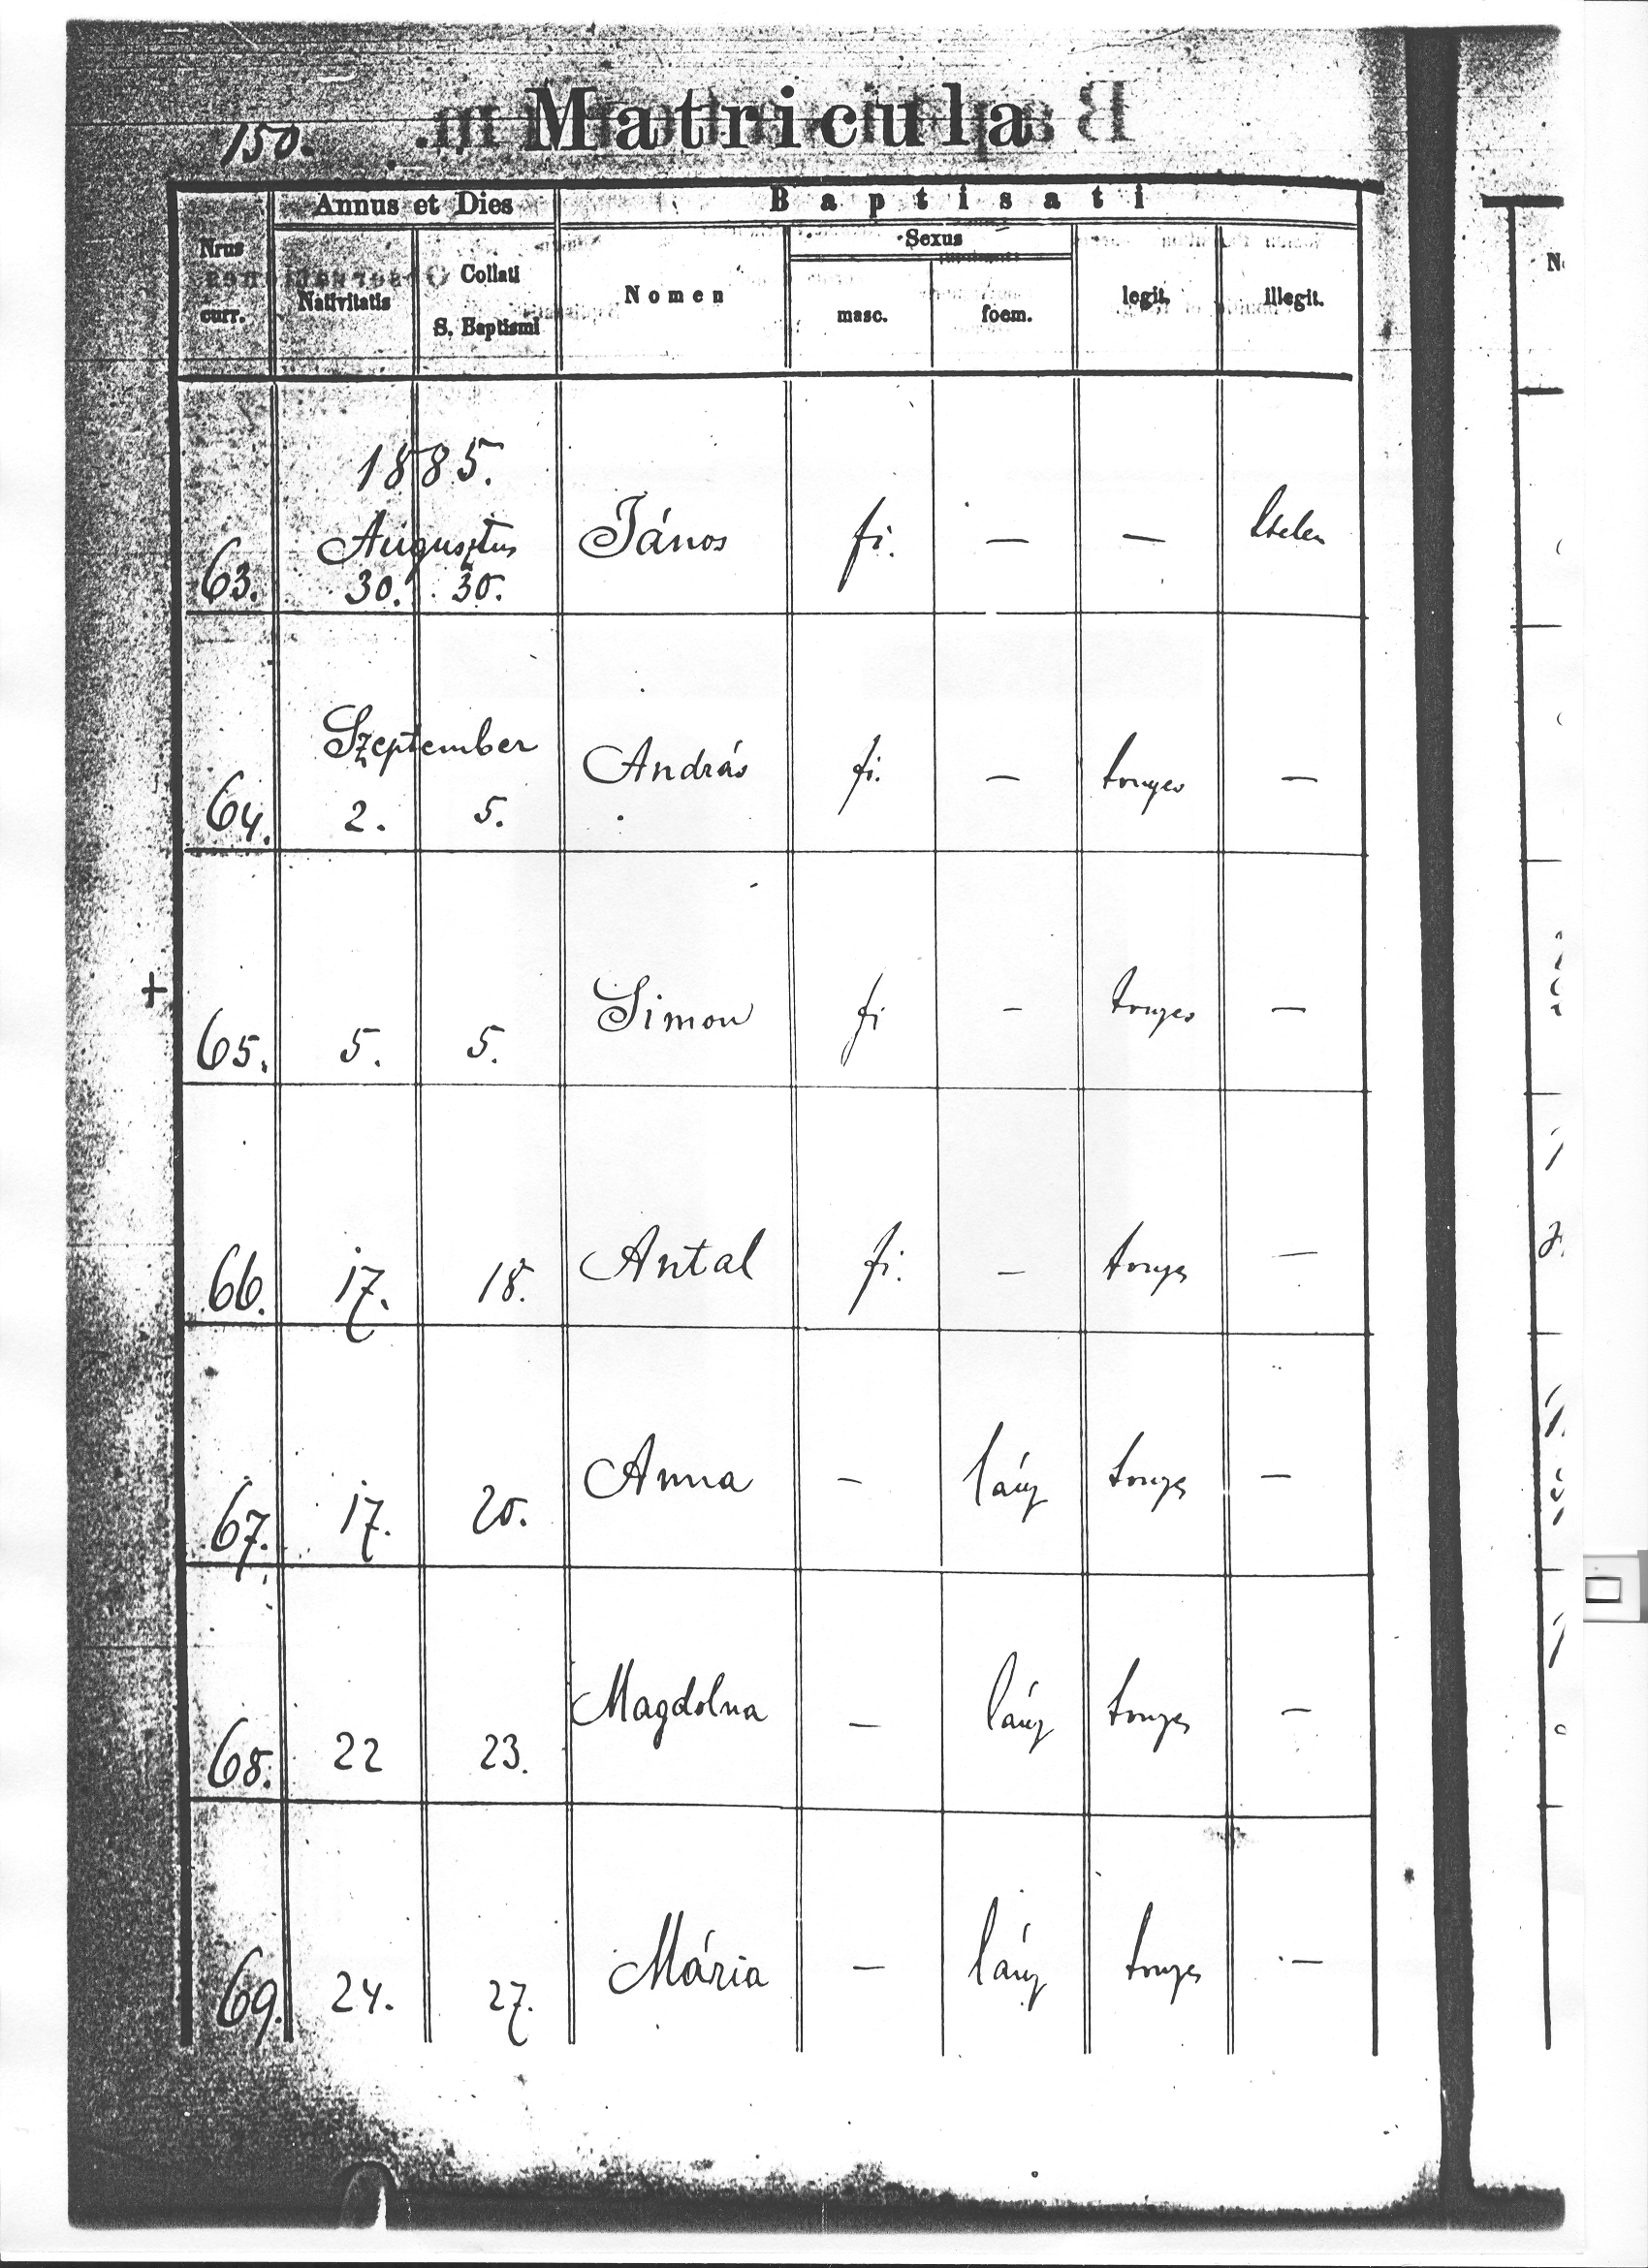 150. Matricula
Annus et Dies
Baptisati
Nrus
curr.
Nativitatis
Collati
S. Baptismi
Nomen
Sexus
masc.
foem.
legit.
illegit.
1885.
Augusztus
63. 30. 30. János fi. — —
Szeptember
64. 2. 5. András fi. — —
+
65. 5. 5. Simon fi — —
66. 17. 18. Antal fi. — —
67. 17. 20. Anna — lány —
68. 22 23. Magdolna — lány —
69. 24. 27. Mária — lány —